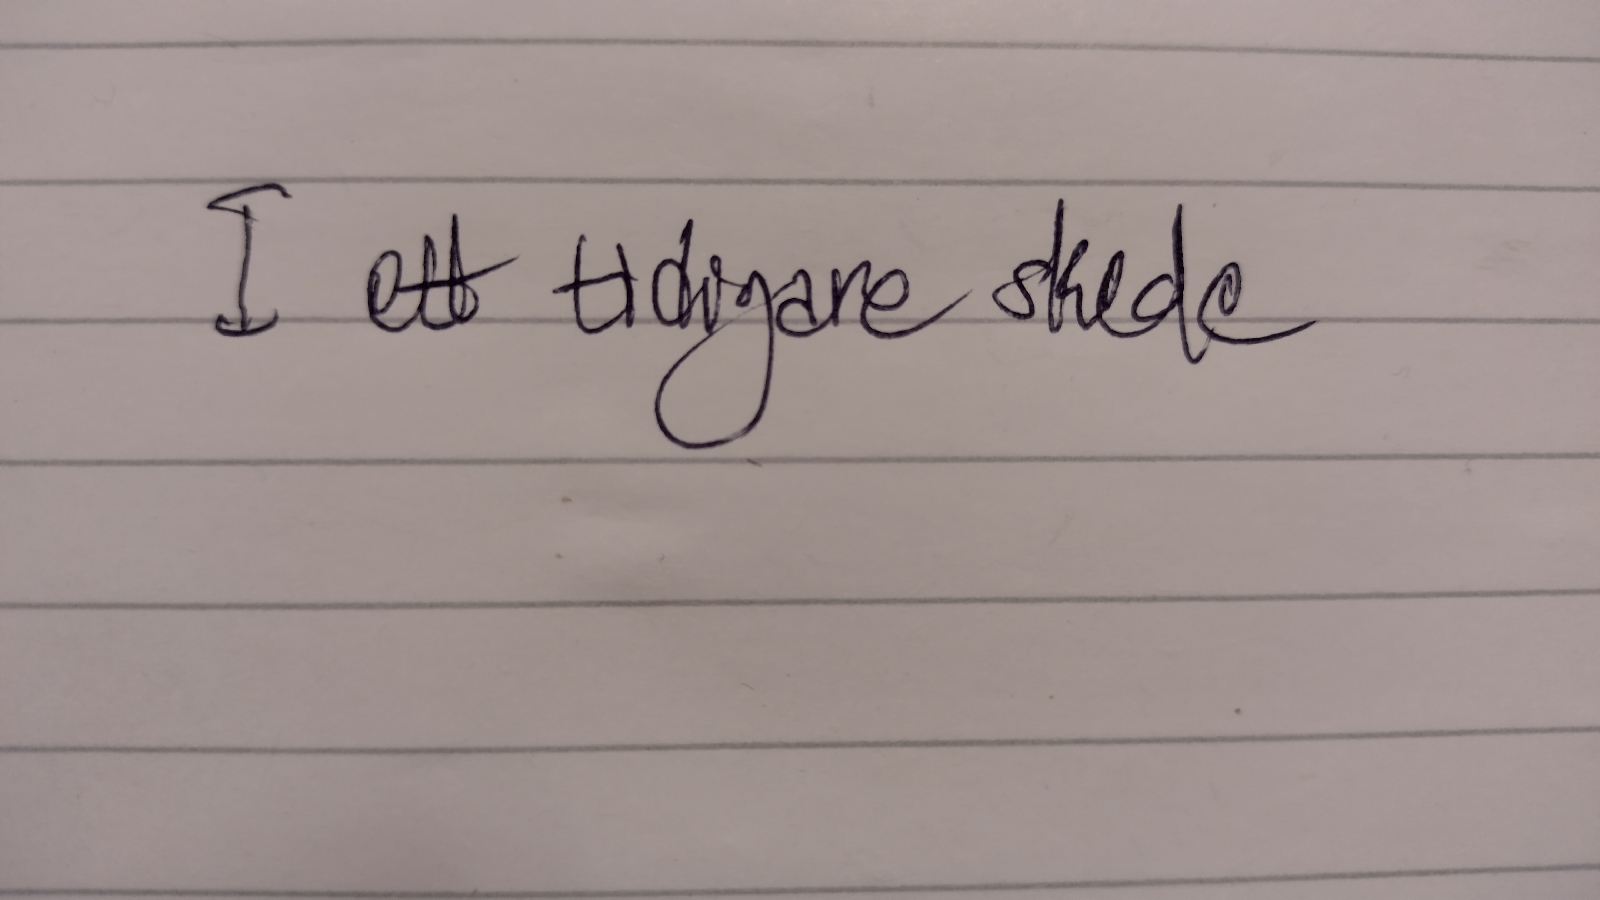 I ett tidigare skede